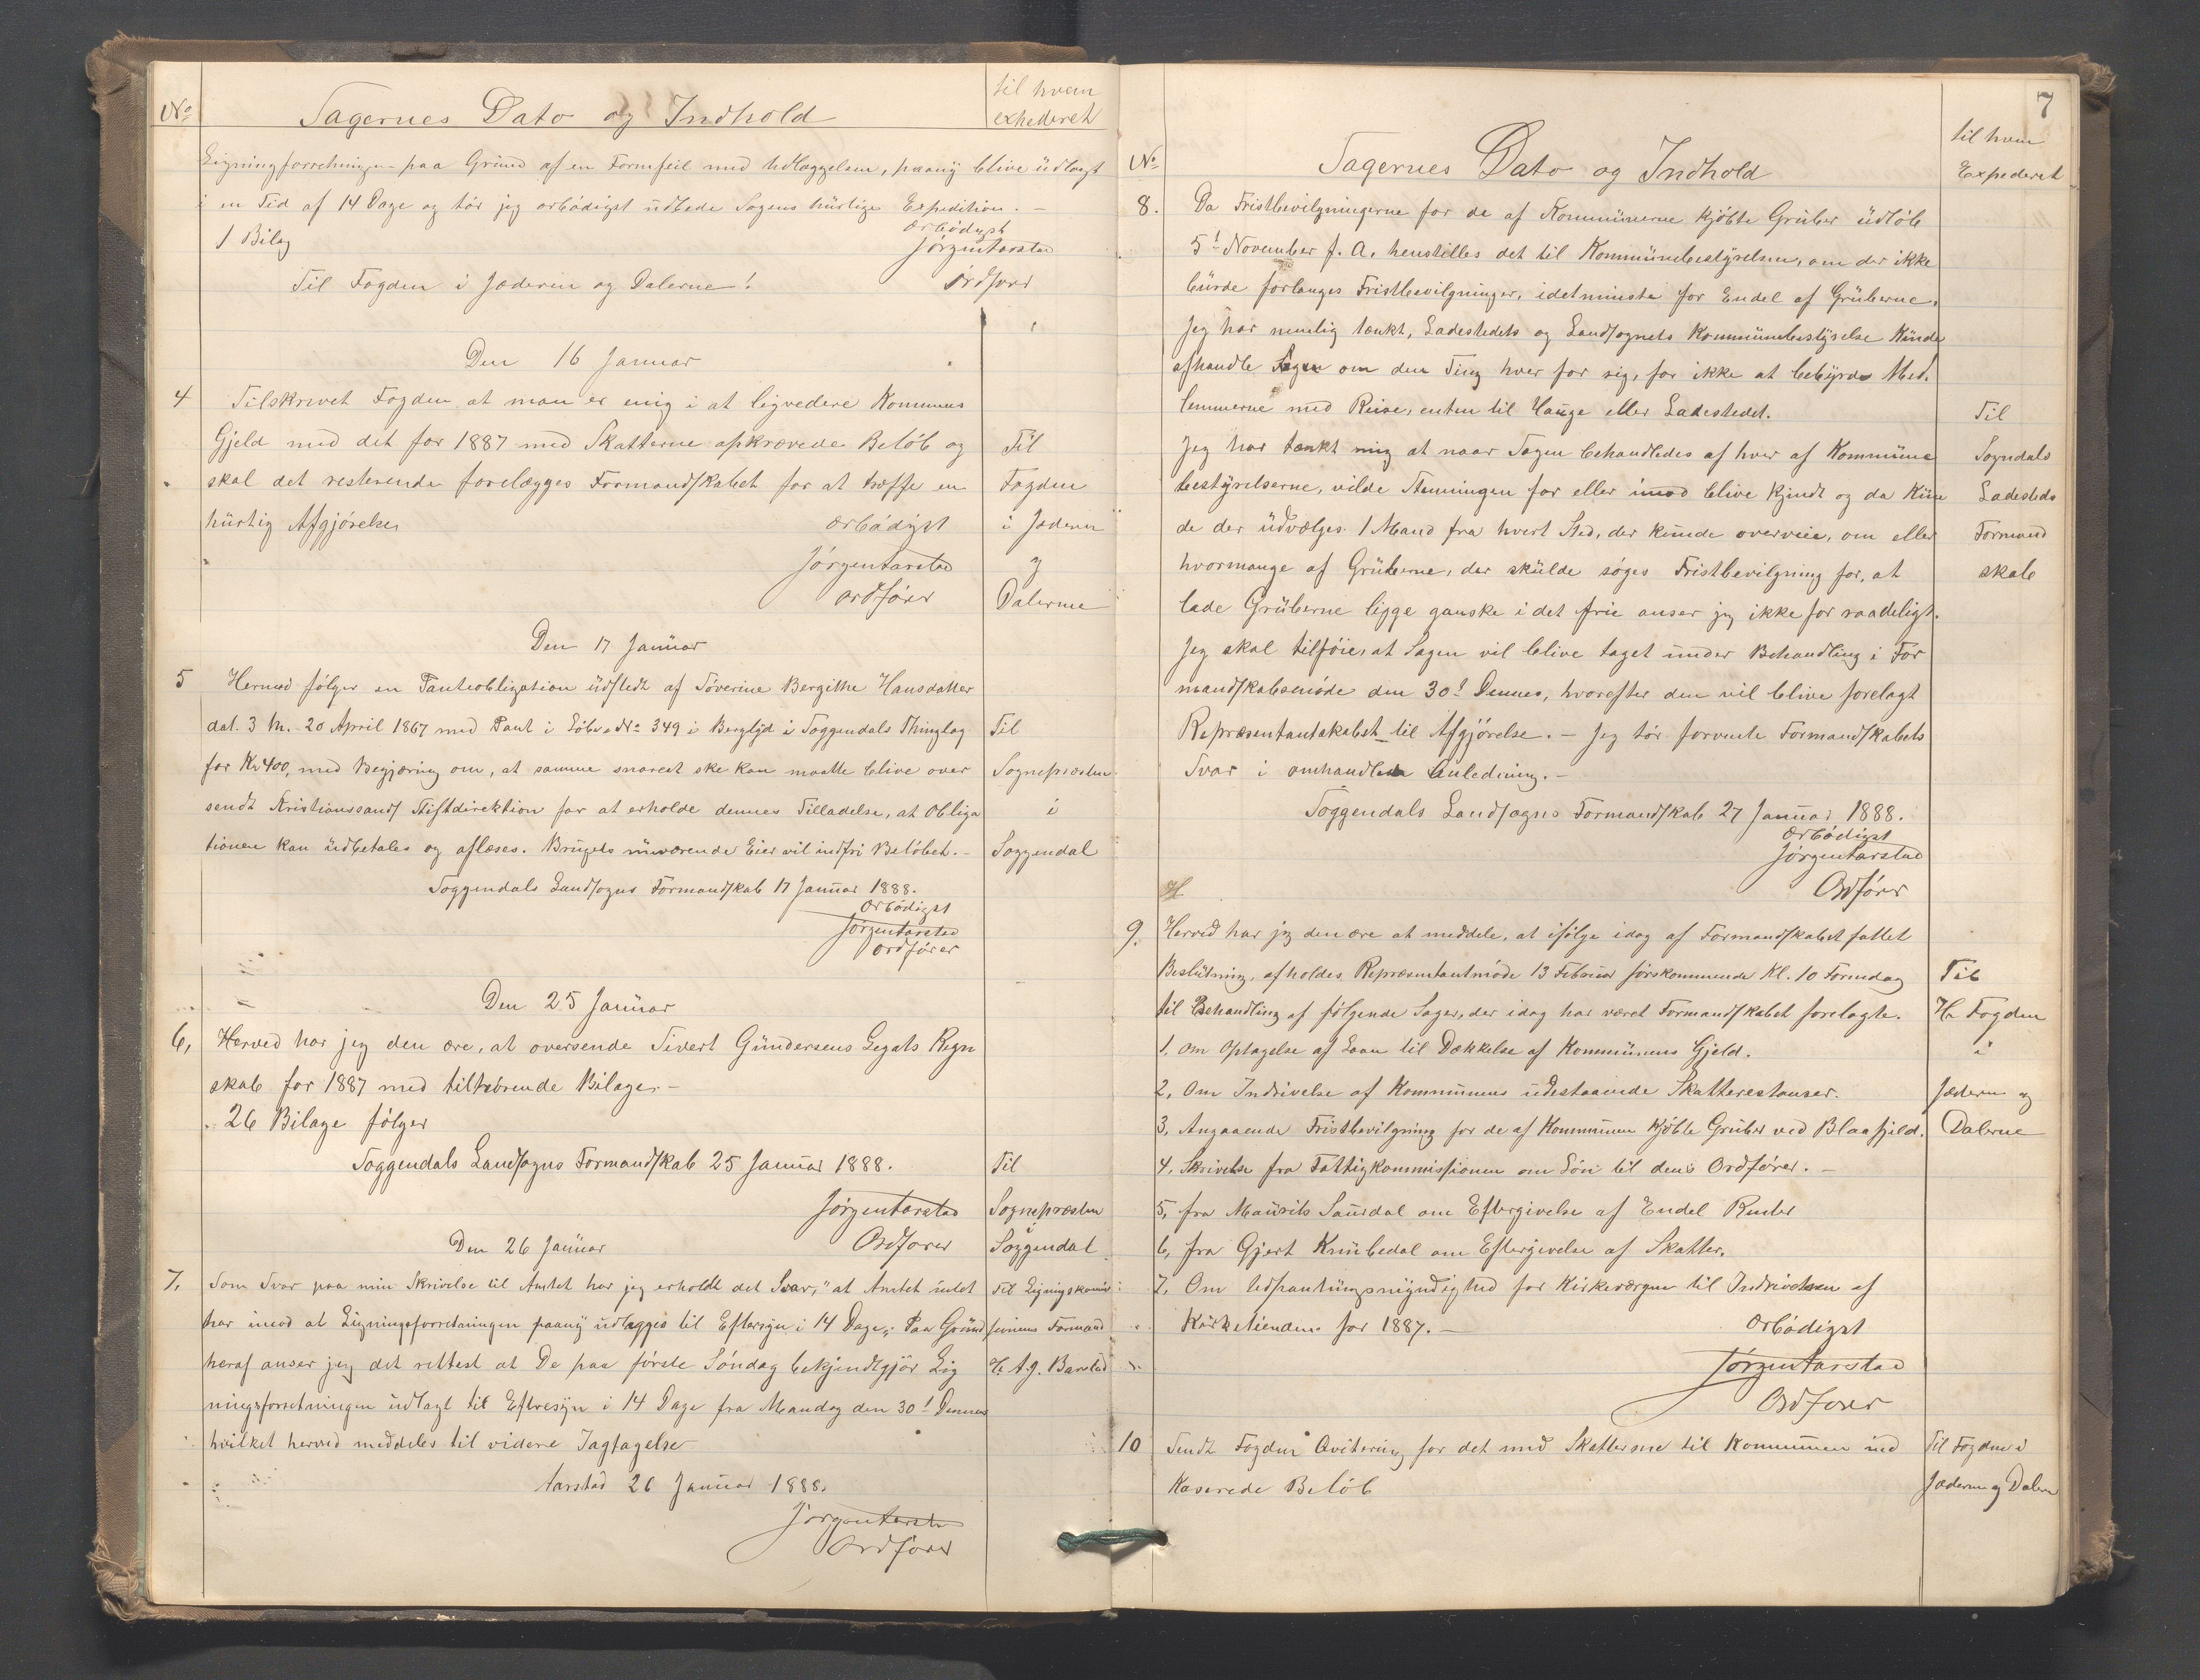 No
Sagernes Dato og Indhold
til hvem
exhederet
Ligningforretningen paa Grund af en Formfeil med Udlæggelsen, paany blive üdlagt
i en Tid af 14 Dage og tör jeg ærbödigst udbede Sagens hürlige Expedition. —
1 Bilag
ærbödigst
Jörgen Aarstad
Til Fogden i Jæderen og Dalerne!
Ordförer
Den 16 Januar
4
Tilskrevet Fogden at man er enig i at ligvedere Kommens
Gjeld med det for 1887 med Skatterne opkrævede Belöb og
skal det resterende forelægges Formandskabet for at træffe en
hürtig Afgjörelse
ærbödigst
Jörgen Aarstad
ordförer
Til
Fogden
i Jæderen
og
Dalerne
Den 17 Januar
5
Hermed fölger en Panteobligation üdstedt af Söverine Bergithe Hansdatter
dat. 3 th. 20 April 1867 med Pant i Löbe No 349 i Berglyd i Soggendals Thinglag
for Kr 400, med Begjæring om, at samme snarest ske kan maatte blive over
sendt Kristianssands Stiftdirektion for at erholde dennes Tilladelse, at Obliga
tionen kan üdbetales og aflæses. Brugets nüværende Eier vil indfri Belöbet. —
Soggendals Landsogns Formandskab 17 Januar 1888.
Ærbödigst
Jörgen Aarstad
ordförer
Til
Sognepræsten
i
Soggendal
Den 25 Januar
6,
Herved har jeg den ære, at oversende Sivert Gündersens Legats Regn
skab for 1887 med tilhörende Bilage. —
26 Bilage fölger
Soggendals Landsogns Formandskab 25 Januar 1888.
Jörgen Aarstad
Ordförer
Til
Sognepræsten
i
Soggendal
Den 26 Januar
7,
Som Svar paa min Skrivelse til Amtet har jeg erholdt det Svar, "at Amtet intet
har imod at Ligningsforretningen paany udlægges til Eftersyn i 14 Dage". Paa Grund
heraf anser jeg det rettest at De paa förste Söndag bekjendtgjör Lig
ningsforretningen üdlagt til Eftersyn i 14 Dage fra Mandag den 30! Dennes
hvilket herved meddeles til videre Iagtagelse
Aarstad 26 Januar 1888.
Jörgen Aarstad
Ordförer
Til Ligningskomis
sionens Formand
Hr A. G. Barstad
7
No
Sagernes Dato og Indhold
til hvem
Expederet
8.
Da Fristbevilgningerne for de af Kommünerne kjöbte Grüber üdlöb
5! November f. A. henstilles det til Kommünebestyrelsen, om der ikke
bürde forlanges Fristbevilgninger, idetminste for Endel af Grüberne.
Jeg har nemlig tænkt, Ladestedets og Landsognets Kommünebestyrelse Künde
afhandle Sagen om den Ting hver for sig, for ikke at bebyrde Med.
lemmerne med Reise, enten til Hauge eller Ladestedet.
Jeg har tænkt mig at naar Sagen behandledes af hver af Kommüne
bestyrelserne, vilde Stemningen for eller imod blive kjendt og da Kün
de der üdvælges 1 Mand fra hvert Sted, der kunde overveie, om eller
hvormange af Grüberne, der skülde söges Fristbevilgning for, at
lade Grüberne ligge ganske i det frie anser jeg ikke for raadeligt.
Jeg skal tilföie, at Sagen vil blive taget under Behandling i For
mandskabsmöde den 30! Dennes, hvorefter den vil blive forelagt
Repræsentantskabet til Afgjörelse. — Jeg tör forvente Formandskabets
Svar i omhandlede Anledning. —
Soggendals Landsogns Formandskab 27 Januar 1888.
Ærbödigst
Jörgen Aarstad
Ordförer
Til
Sogndals
Ladesteds
Formand
skab
H
9.
Herved har jeg den ære at meddele, at ifölge idag af Formandskabet fattet
Beslütning, afholdes Repræsentantmöde 13 Februar förskommende Kl. 10 Formdag
til Behandling af fölgende Sager, der idag har været Formandskabet forelagte.
1, Om Optagelse af Laan til Dækkelse af Kommünens Gjeld.
2, Om Indrivelse af Kommünens udestaaende Skatterestanser.
3, Angaaende Fristbevilgning for de af Kommünen kjöbte Grüber ved Blaafjeld.
4, Skrivelse fra Fattigkommissionen om Lön til dens Ordförer. —
5, fra Maürits Saurdal om Eftergivelse af Endel Renter
6, fra Gjert Knübedal om Eftergivelse af Skatter.
7, Om Udpantningsmyndighed for Kirkeværgen til Indrivelsen af
Kirketienden for 1887. —
Ærbödigst
Jörgen Aarstad
Ordförer
Til
Hr Fogden
i
Jæderen og
Dalerne
10
Sendt Fogden Qvitering for det med Skatterne til Kommünen ind
Kasserede Belöb
Til Fogden i
Jæderen og Dalern